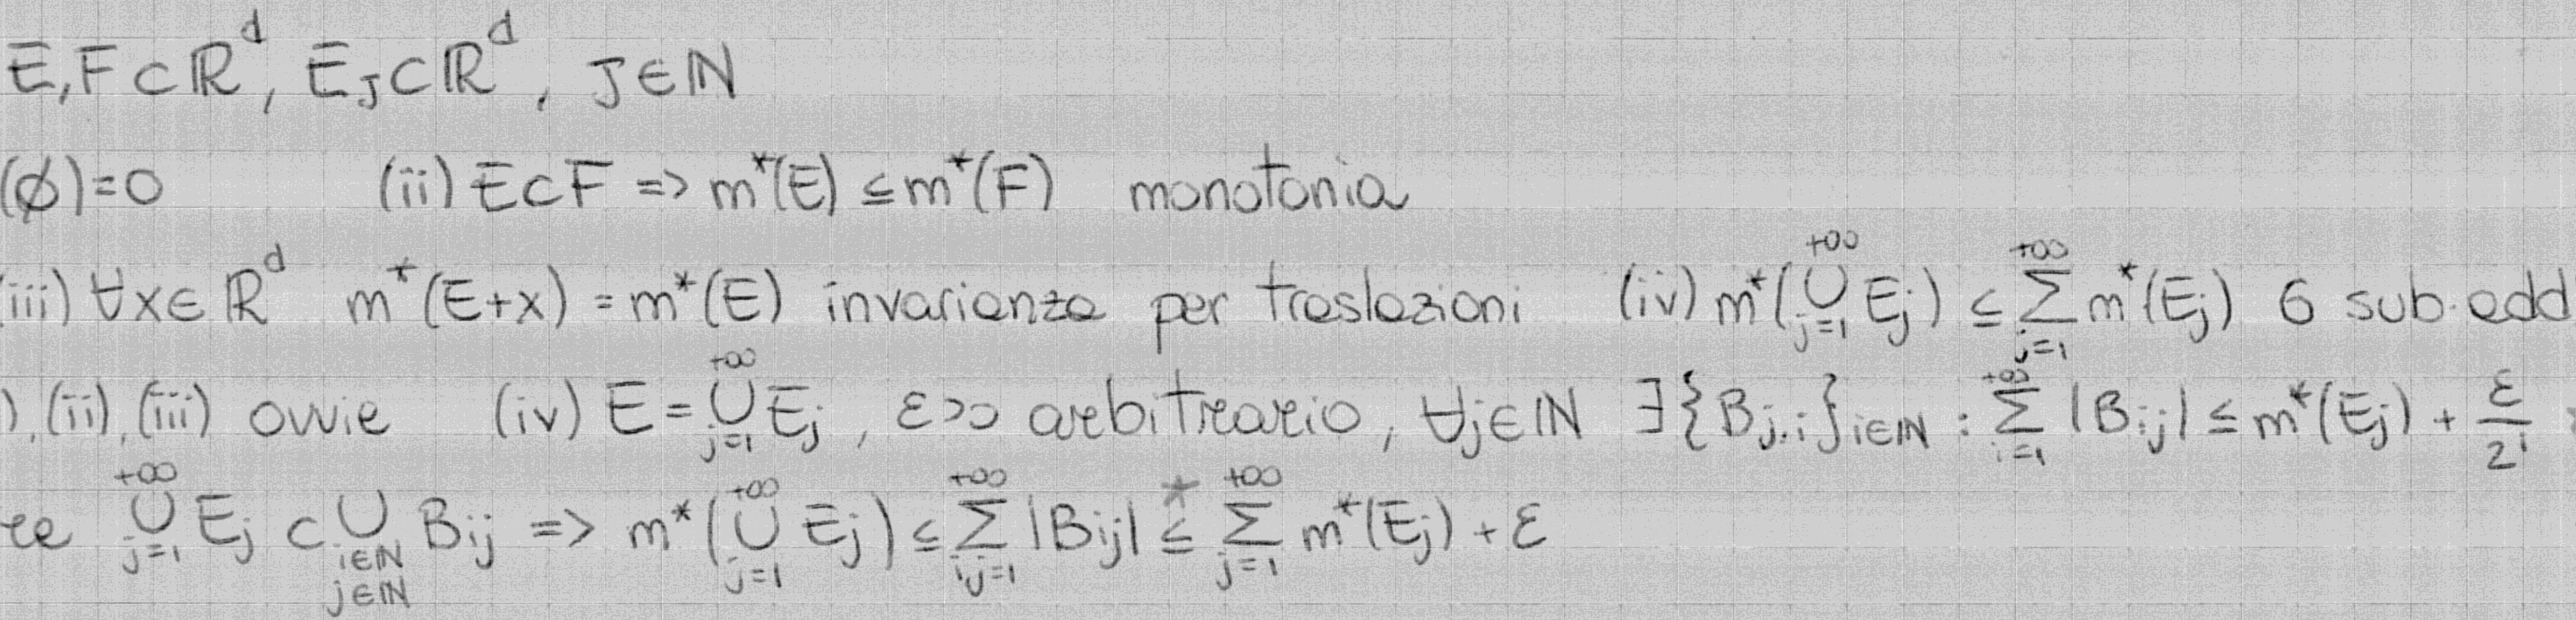 E, F ⊂ ℝ^d, E_J ⊂ ℝ^d, J ∈ ℕ
(∅) = 0 (ii) E ⊂ F => m*(E) ≤ m*(F) monotonia
(iii) ∀x ∈ ℝ^d m*(E+x) = m*(E) invarianza per traslazioni (iv) m*(⋃_{j=1}^{+∞} E_j) ≤ ∑_{j=1}^{+∞} m*(E_j) σ sub.add
), (ii), (iii) ovvie (iv) E = ⋃_{j=1}^{+∞} E_j, ε>0 arbitrario, ∀j∈ℕ ∃{B_{j,i}}_{i∈ℕ} : ∑_{i=1}^{+∞} |B_{ij}| ≤ m*(E_j) + ε/2^i
re ⋃_{j=1}^{+∞} E_j ⊂ ⋃_{i∈ℕ j∈ℕ} B_{ij} => m*(⋃_{j=1}^{+∞} E_j) ≤ ∑_{i,j=1}^{+∞} |B_{ij}| ≤^* ∑_{j=1}^{+∞} m*(E_j) + ε